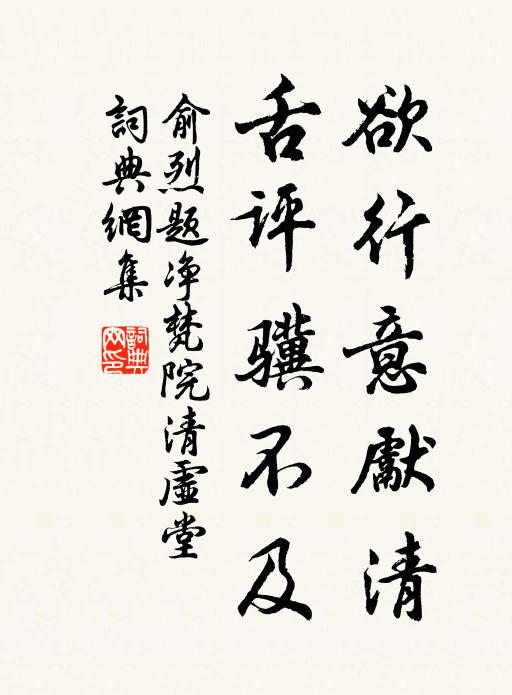 欲行意獻清
舌评骥不及
俞烈题净梵院清虚堂
詞典網集
詞典網印